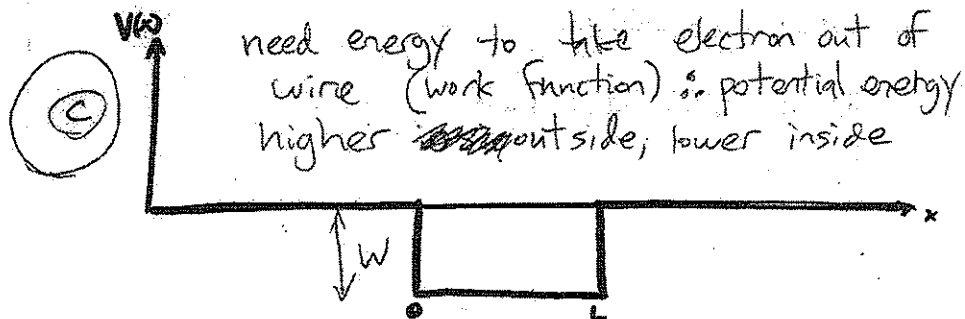 V(x)
need energy to take electron out of
wire (work function) ∴ potential energy
C
higher outside, lower inside
x
W
0 L